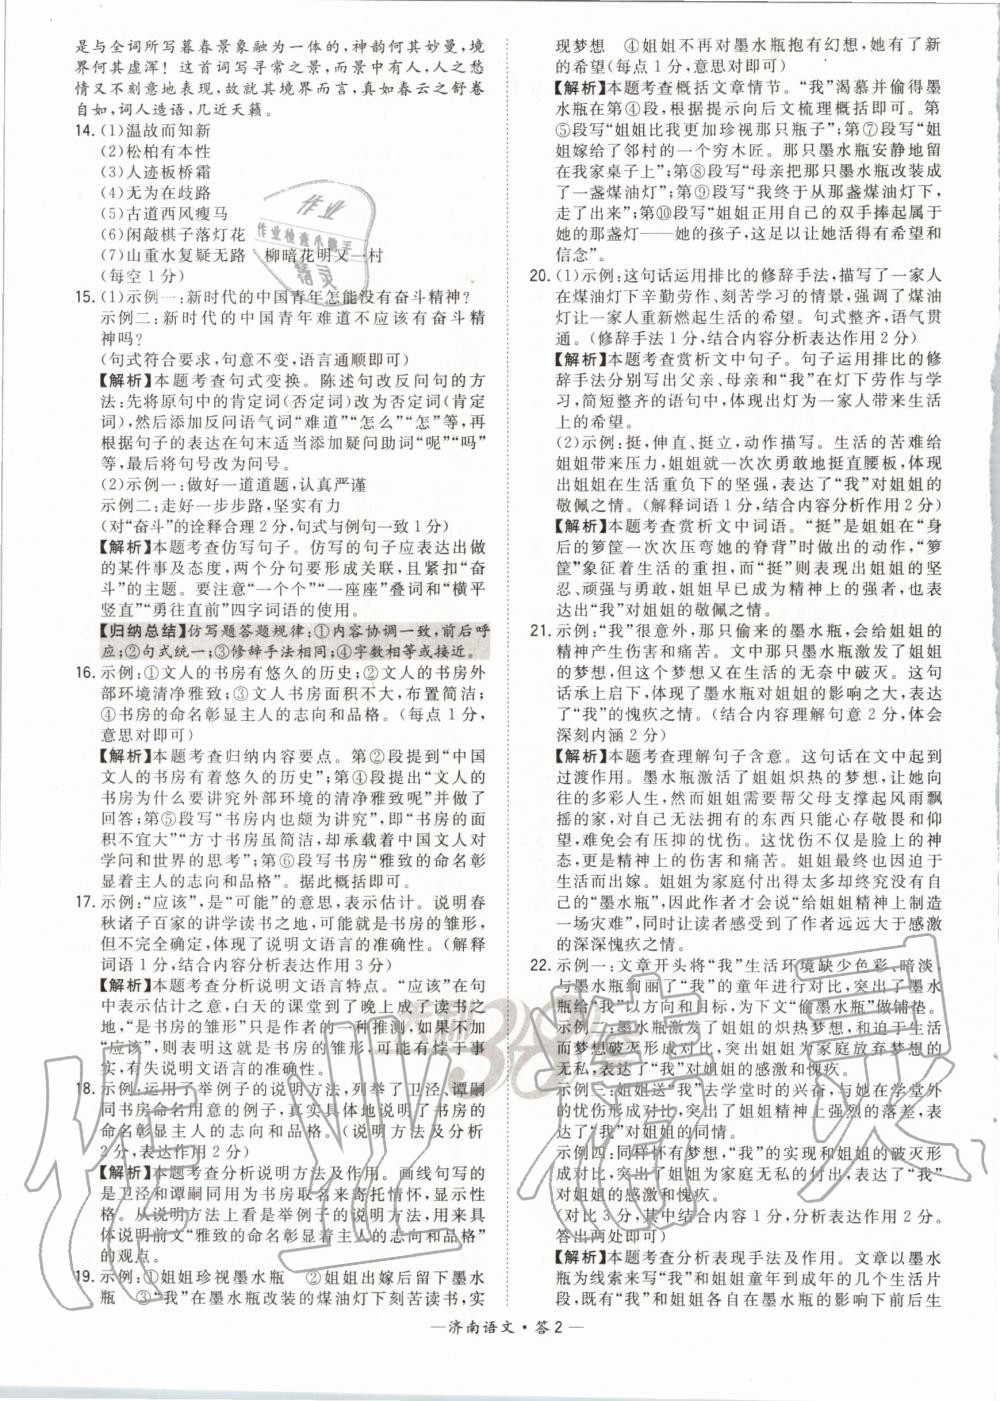 是与全词所写暮春景象融为一体的,神韵何其妙曼,境
界何其虚浑!这首词写寻常之景,而景中有人,人之愁
情又不刻意地表现,故就其境界而言,真如春云之舒卷
自如,词人造语,几近天籁。
14.(1)温故而知新
(2)松柏有本性
(3)人迹板桥霜
(4)无为在歧路
(5)古道西风瘦马
(6)闲敲棋子落灯花
(7)山重水复疑无路 柳暗花明又一村
(每空1分)
15.(1)示例一:新时代的中国青年怎能没有奋斗精神?
示例二:新时代的中国青年难道不应该有奋斗精
神吗?
(句式符合要求,句意不变,语言通顺即可)
【解析】本题考查句式变换。陈述句改反问句的方
法:先将原句中的肯定词(否定词)改为否定词(肯定
词),然后添加反问语气词“难道”“怎么”“怎”等,再
根据句子的表达在句末适当添加疑问助词“呢”“吗”
等,最后将句号改为问号。
(2)示例一:做好一道道题,认真严谨
示例二:走好一步步路,坚实有力
(对“奋斗”的诠释合理2分,句式与例句一致1分)
【解析】本题考查仿写句子。仿写的句子应表达出做
的某件事及态度,两个分句要形成关联,且紧扣“奋
斗”的主题。要注意“一个个”“一座座”叠词和“横平
竖直”“勇往直前”四字词语的使用。
【归纳总结】仿写题答题规律:①内容协调一致,前后呼
应;②句式统一;③修辞手法相同;④字数相等或接近。
16.示例:①文人的书房有悠久的历史;②文人的书房外
部环境清净雅致;③文人书房面积不大,布置简洁;
④书房的命名彰显主人的志向和品格。(每点1分,
意思对即可)
【解析】本题考查归纳内容要点。第②段提到“中国
文人的书房有着悠久的历史”;第④段提出“文人的
书房为什么要讲究外部环境的清净雅致呢”并做了
回答;第⑤段写“书房内也颇为讲究”,即“书房的面
积不宜大”“方寸书房虽简洁,却承载着中国文人对
学问和世界的思考”;第⑥段写书房“雅致的命名彰
显着主人的志向和品格”。据此概括即可。
17.示例:“应该”,是“可能”的意思,表示估计。说明春
秋诸子百家的讲学读书之地,可能就是书房的雏形,
但不完全确定,体现了说明文语言的准确性。(解释
词语1分,结合内容分析表达作用3分)
【解析】本题考查分析说明文语言特点。“应该”在句
中表示估计之意,白天的课堂到了晚上成了读书之
地,“是书房的雏形”只是作者的一种推测,如果不用
“应该”,则表明这就是书房的雏形,可能有悖于事
实,有失说明文语言的准确性。
18.示例:运用了举例子的说明方法,列举了卫泾、谭嗣
同书房命名用意的例子,突出强调了文人书房的命
名彰显主人的志向和品格。(说明方法及分析
2分,表达作用2分)
【解析】本题考查分析说明方法及作用。画线句写的
是卫泾和谭嗣同用为书房取名来寄托情怀,显示性
格。从说明方法上看是举例子的说明方法,具体地
说明前文“雅致的命名彰显着主人的志向和品格”
的观点。
19.示例:①姐姐珍视墨水瓶 ②姐姐出嫁后留下墨水
瓶 ③“我”在墨水瓶改装的煤油灯下刻苦读书,实
现梦想 ④姐姐不再对墨水瓶抱有幻想,她有了新
的希望(每点1分,意思对即可)
【解析】本题考查概括文章情节。“我”渴慕并偷得墨
水瓶在第④段,根据提示向后文梳理概括即可。第
⑤段写“姐姐比我更加珍视那只瓶子”;第⑦段写“姐
姐嫁给了邻村的一个穷木匠。那只墨水瓶安静地留
在我家桌子上”;第⑧段写“母亲把那只墨水瓶改装成
了一盏煤油灯”;第⑨段写“我终于从那盏煤油灯下,
走了出去”;第⑩段写“姐姐正用自己的双手捧起属于
她的那盏灯——她的孩子,这足以让她活得有希望和
信念”。
20.(1)示例:这句话运用排比的修辞手法,描写了一家人
在煤油灯下辛勤劳作、刻苦学习的情景,强调了煤油
灯让一家人重新燃起生活的希望。句式整齐,语气贯
通。(修辞手法1分,结合内容分析表达作用2分)
【解析】本题考查赏析文中句子。句子运用排比的修
辞手法分别写出父亲、母亲和“我”在灯下劳作与学
习,简短整齐的语句中,体现出灯为一家人带来生活
上的希望。
(2)示例:挺,伸直、挺立,动作描写。生活的苦难给
姐姐带来压力,姐姐就一次次勇敢地挺直腰板,体现
出姐姐在生活重负下的坚强,表达了“我”对姐姐的
敬佩之情。(解释词语1分,结合内容分析作用2分)
【解析】本题考查赏析文中词语。“挺”是姐姐在“身
后的箩筐一次次压弯她的脊背”时做出的动作,“箩
筐”象征着生活的重担,而“挺”则表现出姐姐的坚
忍、顽强与勇敢,姐姐早已成为精神上的强者,表达
出“我”对姐姐的敬佩之情。
21.示例:“我”很意外,那只偷来的墨水瓶,会给姐姐的
精神产生伤害和痛苦。文中那只墨水瓶激发了姐姐
的梦想,但这个梦想又在生活的无奈中破灭。这句
话承上启下,体现了墨水瓶对姐姐的影响之大,表达
了“我”的愧疚之情。(结合内容理解句意2分,体会
深刻内涵2分)
【解析】本题考查理解句子含意。这句话在文中起到
过渡作用。墨水瓶激活了姐姐炽热的梦想,让她向
往的多彩人生,然而姐姐需要帮父母支撑起风雨飘
摇的家,对自己无法拥有的东西只能心存敬畏和仰
望,难免会有压抑的忧伤。这忧伤不仅是脸上的神
态,更是精神上的伤害和痛苦。姐姐最终也因迫于
生活而出嫁。姐姐为家庭付出得太多却终究没有自
己的“墨水瓶”,因此作者才会说“给姐姐精神上制造
一场灾难”,同时让读者感受到了作者远远大于感激
的深深愧疚之情。
22.示例一:文章开头将“我”生活环境缺少色彩、暗淡,
与墨水瓶绚丽了“我”的童年进行对比,突出了墨水
瓶给予“我”以方向和目标,为下文“偷墨水瓶”做铺垫。
示例二:墨水瓶激发了姐姐的炽热梦想,和迫于生活
而梦想破灭形成对比,突出姐姐为家庭放弃梦想的
无私,表达了“我”对姐姐的感激和愧疚。
示例三:姐姐送“我”去学堂时的兴奋,与她在学堂外
的忧伤形成对比,突出了姐姐精神上强烈的落差,表
达了“我”对姐姐的同情。
示例四:同样怀有梦想,“我”的实现和姐姐的破灭形
成对比,突出了姐姐为家庭无私的付出,表达了“我”
对姐姐的感激和愧疚。
(对比3分,其中结合内容1分,分析表达作用2分。
答出两处即可)
【解析】本题考查分析表现手法及作用。文章以墨水
瓶为线索来写“我”和姐姐童年到成年的几个生活片
段,既有“我”和姐姐各自在墨水瓶的影响下前后生
—济南语文·答2—
作业
作业检查小帮手
精灵
作业精灵